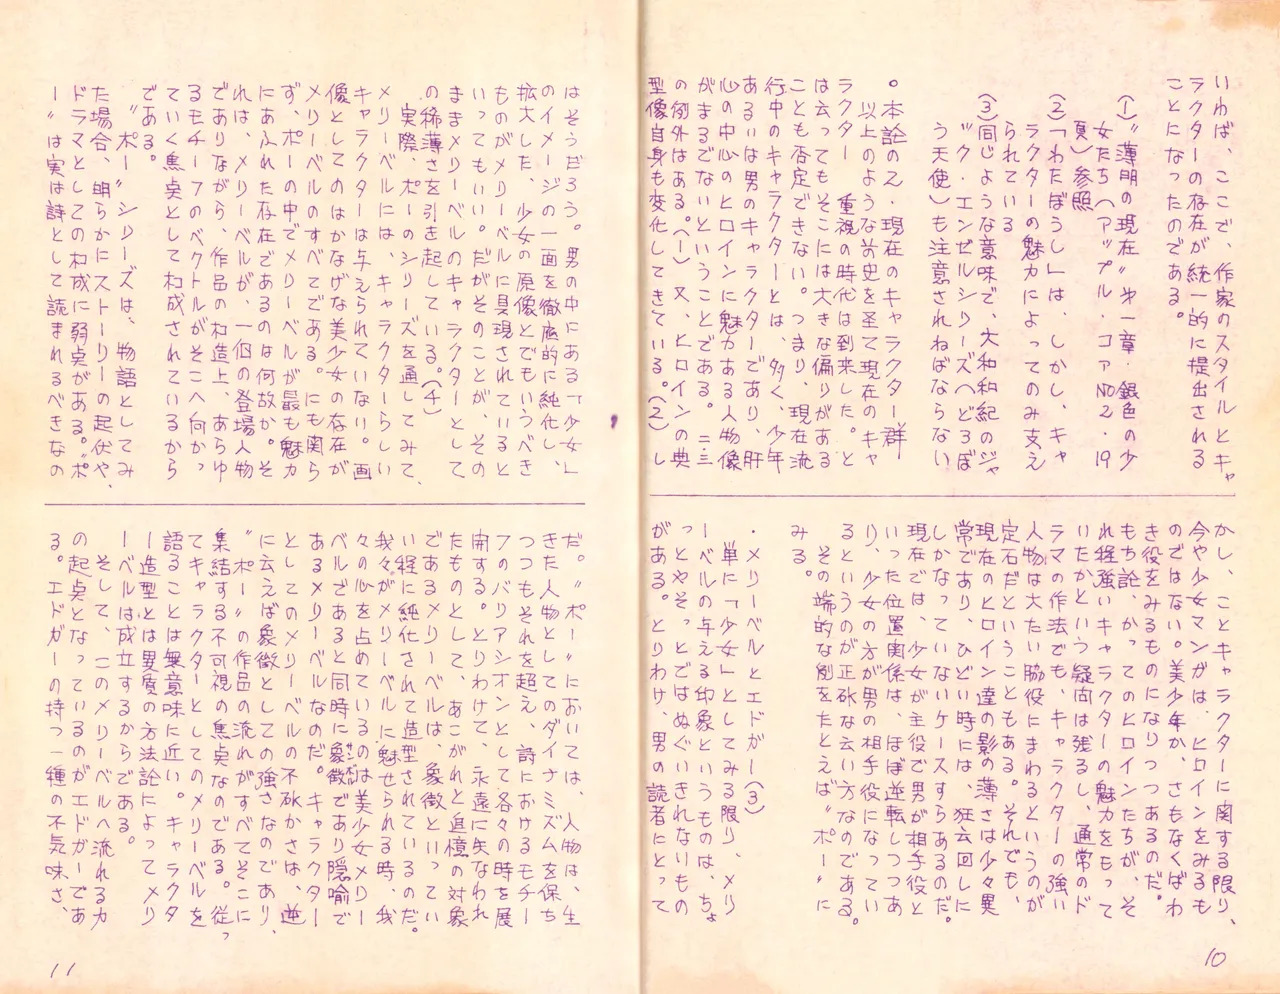 いわば、ここで、作家のスタイルとキャ
ラクターの存在が統一的に提出される
ことになったのである。
(1)〝薄明の現在〟第一章・銀色の少
女たち(アップル・コアNO2・19
頁)参照
(2)「わたぼうし」は、しかし、キャ
ラクターの魅力によってのみ支え
られている
(3)同じような意味で、大和和紀のジャ
ック・エンゼルシリーズ(どろぼ
う天使)も注意されねばならない
。本論の2・現在のキャラクター群
以上のような前史を圣て現在のキャ
ラクター 重視の時代は到来した。と
は云ってもそこには大きな偏りがある
ことも否定できない。つまり、現在流
行中のキャラクターとは、多く、少年
あるいは男のキャラクターであり、肝
心の中心のヒロインに魅力ある人物像
がまるでないということである。二三
の例外はある。(1)又、ヒロインの典
型像自身も変化してきている。(2)し
かし、ことキャラクターに関する限り、
今や少女マンガは、ヒロインをみるも
のではない。美少年か、さもなくばわ
き役をみるものになりつつあるのだ。
もち論、かってのヒロインたちが、そ
れ程強いキャラクターの魅力をもって
いたかという疑向は残るし、通常のド
ラマの作法でも、キャラクターの強い
人物は大たい脇役にまわるというのが
定石だということもある。それでも、
現在のヒロイン達の影の薄さは少々異
常であり、ひどい時には、狂云回しに
しかなっていないケースすらあるのだ。
現在では、少女が主役で男が相手役と
いった位置関係は、ほぼ逆転しつつあ
り、少女の方が男の相手役になってい
るというのが正砿な云い方なのである。
その端的な例をたとえば〝ポー〟に
みる。
・メリーベルとエドガー(3)
単に「少女」としてみる限り、メリ
ーベルの与える印象というものは、ちょ
っとやそっとではぬぐいきれないもの
がある。とりわけ、男の読者にとって
はそうだろう。男の中にある「少女」
のイメージの一面を徹底的に純化し、
拡大した、少女の原像とでもいうべき
ものがメリーベルに具現されていると
いってもいい。だがそのことが、その
ままメリーベルのキャラクターとして
の稀薄さを引き起している。(4)
実際、ポーのシリーズを通してみて、
メリーベルには、キャラクターらしい
キャラクターは与えられていない。画
像としてのはかなげな美少女の存在が
メリーベルのすべてである。にも関ら
ず、ポーの中でメリーベルが最も魅力
にあふれた存在であるのは何故か。そ
れは、メリーベルが、一個の登場人物
でありながら、作品の构造上、あらゆ
るもチーフのベクトルがそこへ向かっ
ていく焦点として构成されているから
である。
〝ポー〟シリーズは、物語としてみ
た場合、明らかにストーリーの起伏や、
ドラマとしての构成に弱点がある。〝ポ
ー〟は実は詩として読まれるべきなの
だ。〝ポー〟においては、人物は、生
きた人物としてのダイナミズムを保ち
つつもそれを超え、詩におけるモチー
フのバリアシオンとして各々の時を展
開する。とりわけて、永遠に失なわれ
たものとして、あこがれと追憶の対象
であるメリーベルは、象徴といってい
い程に純化されて造型されているのだ。
我々がメリーベルに魅せられる時、我
々の心を占めているのは美少女メリー
ベルであると同時に象徴であり隠喩で
あるメリーベルなのだ。キャラクター
としてのメリーベルの不砿かさは、逆
に云えば象徴としての強さなのであり、
〝ポー〟の作品の流れがすべてそこに
集結する不可視の焦点なのである。従っ
てキャラクターとしてのメリーベルを
語ることは無意味に近い。キャラクタ
ー造型とは異質の方法論によってメリ
ーベルは成立するからである。
そして、このメリーベルへ流れる力
の起点となっているのがエドガーであ
る。エドガーの持つ一種の不気味さ、
10
11